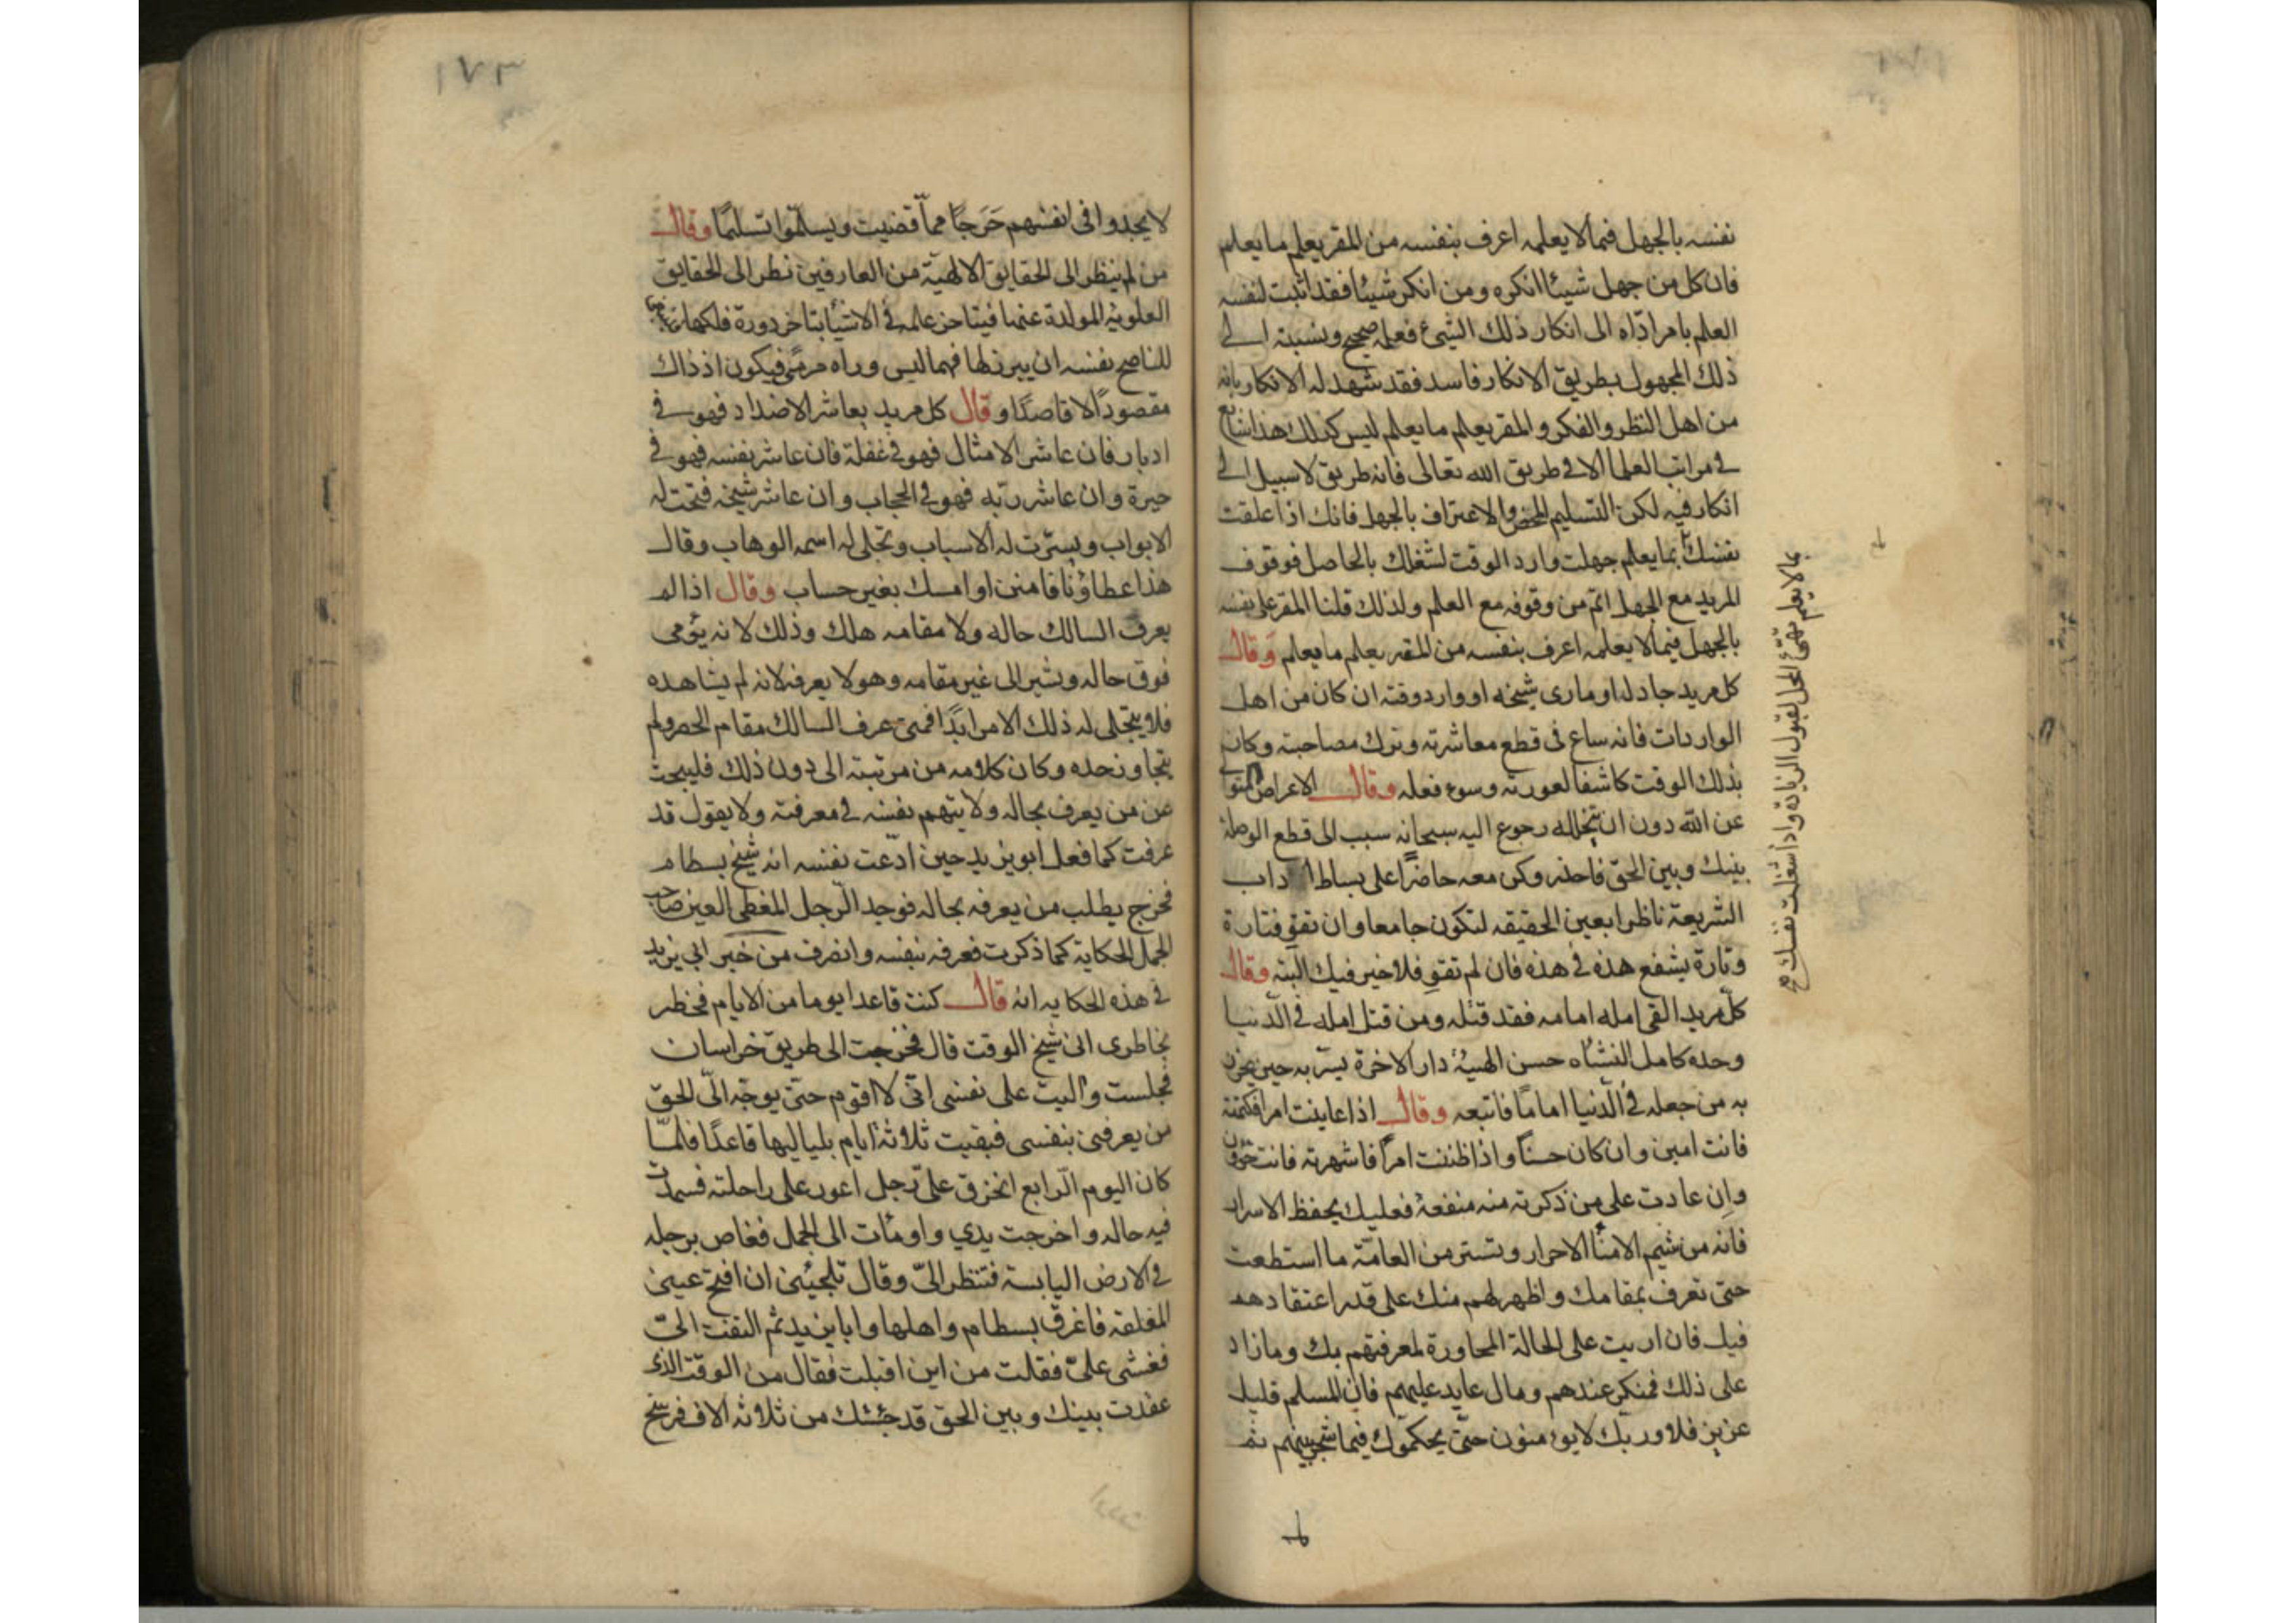 نفسه بالجهل فيما لا يعلمه اعرف بنفسه من المقر بعلم ما يعلم
فان كل من جهل شيئا انكره ومن انكر شيئا فقد اثبت لنفسه
العلم بامر ادّاه الى انكار ذلك الشيء فعلمه صحيح ونسبته الى
ذلك المجهول بطريق الانكار فاسد فقد شهد له الانكار بانه
من اهل النظر والفكر والمقر بعلم ما يعلم ليس كذلك هذا شايع
في مراتب العلما الا في طريق الله تعالى فانه طريق لا سبيل الى
انكار فيه لكن التسليم المحض والاعتراف بالجهل فانك اذا علقت
نفسك بما يعلم جهلت وارد الوقت لشغلك بالحاصل فوقوف
المريد مع الجهل اتم من وقوفه مع العلم ولذلك قلنا المقر على نفسه
بالجهل فيما لا يعلمه اعرف بنفسه من المقر بعلم ما يعلم وقال
كل مريد جادل او مارى شيخه او وارد وقته ان كان من اهل
الواردات فانه ساع في قطع معاشرته وترك مصاحبته وكان
بذلك الوقت كاشفا لعورته وسوء فعله وقال الاعراض المتوا
عن الله دون ان يتخلله رجوع اليه سبحانه سبب الى قطع الوصلة
بينك وبين الحق فاحذر وكن معه حاضرًا على بساط اداب
الشريعة ناظرا بعين الحقيقه لتكون جامعا وان تقو فتارة
وتارة يشفع هذه في هذه فان لم تقو فلا خير فيك البته وقال
كل مريد القى امله امامه فقد قتله ومن قتل امله في الدنيا
وجده كامل النشاه حسن الهيئة دار الاخرة يسر به حين يحزن
به من جعله في الدنيا امامًا فاتبعه وقال اذا عاينت امرا فكتمته
فانت امين وان كان حسنًا واذا ظننت امرًا فاشهرته فانت خؤون
وان عادت على من ذكرته منه منفعة فعليك بحفظ الاسرار
فانه من شيم الامنا الاحرار وتستر من العامّة ما استطعت
حتى تعرف بمقامك واظهر لهم منك على قدر اعتقادهم
فيك فان اربيت على الحالة المجاورة لمعرفتهم بك وما زاد
على ذلك فمنكر عندهم ومال عايد عليهم فان المسلم قليل
عزيز فلا وربك لا يؤمنون حتى يحكموك فيما شجر بينهم ثم
بما لا يعلم تهيّئ المحل لقبول الزيادة واذا شغلت نفسك صح
١٧٣
لا يجدوا في انفسهم حَرَجًا ممّا قضيت ويسلّموا تسليمًا وقال
من لم ينظر الى الحقايق الالهيّة من العارفين نظر الى الحقايق
العلويّة المولدة عنها فيتاخر علمه في الاشيا بتاخر دورة فلكها
للناصح نفسه ان يبرز لها فيما ليس وراه مرمًى فيكون اذ ذاك
مقصودًا لا قاصدًا وقال كل مريد يعاشر الاضداد فهو في
ادبار فان عاشر الامثال فهو في غفلة فان عاشر نفسه فهو في
حيرة وان عاشر ربّه فهو في الحجاب وان عاشر شيخه فتحت له
الابواب ويسّرت له الاسباب وتجلى له اسمه الوهاب وقال
هذا عطاؤنا فامنن او امسك بغير حساب وقال اذا لم
يعرف السالك حاله ولا مقامه هلك وذلك لانه يؤمى
فوق حاله ويشير الى غير مقامه وهو لا يعرفه لانه لم يشاهده
فلا يتجلى له ذلك الامر ابدًا فمتى عرف السالك مقام الحصر ولم
يتجاوز حده وكان كلامه من مرتبته الى دون ذلك فليبحث
عن من يعرف بحاله ولا يتهم نفسه في معرفته ولا يقول قد
عرفت كما فعل ابو يزيد حين ادّعت نفسه انه شيخ بسطام
فخرج يطلب من يعرفه بحاله فوجد الرّجل المغطى العين صاحب
الجمل الحكاية كما ذكرت فعرفه بنفسه وانصرف من خبر ابي يزيد
في هذه الحكايه انه قال كنت قاعدا يوما من الايام فخطر
بخاطرى انى شيخ الوقت قال فخرجت الى طريق خراسان
فجلست واليت على نفسى انّى لا اقوم حتى يوجّه الىّ الحق
من يعرفنى بنفسى فبقيت ثلاثة ايام بلياليها قاعدًا فلمّا
كان اليوم الرابع انخرق علىّ رجل اعور على راحلته فسمدت
فيه حاله واخرجت يدي واومات الى الجمل فغاص برجله
في الارض اليابسة فتنظر الىّ وقال تلجئنى ان افتح عينى
المغلقه فاغرق بسطام واهلها وابا يزيد ثم التفت الىّ
فغشى علىّ فقلت من اين اقبلت فقال من الوقت الذى
عقدت بينك وبين الحق قد جئتك من ثلاثه الاف فرسخ